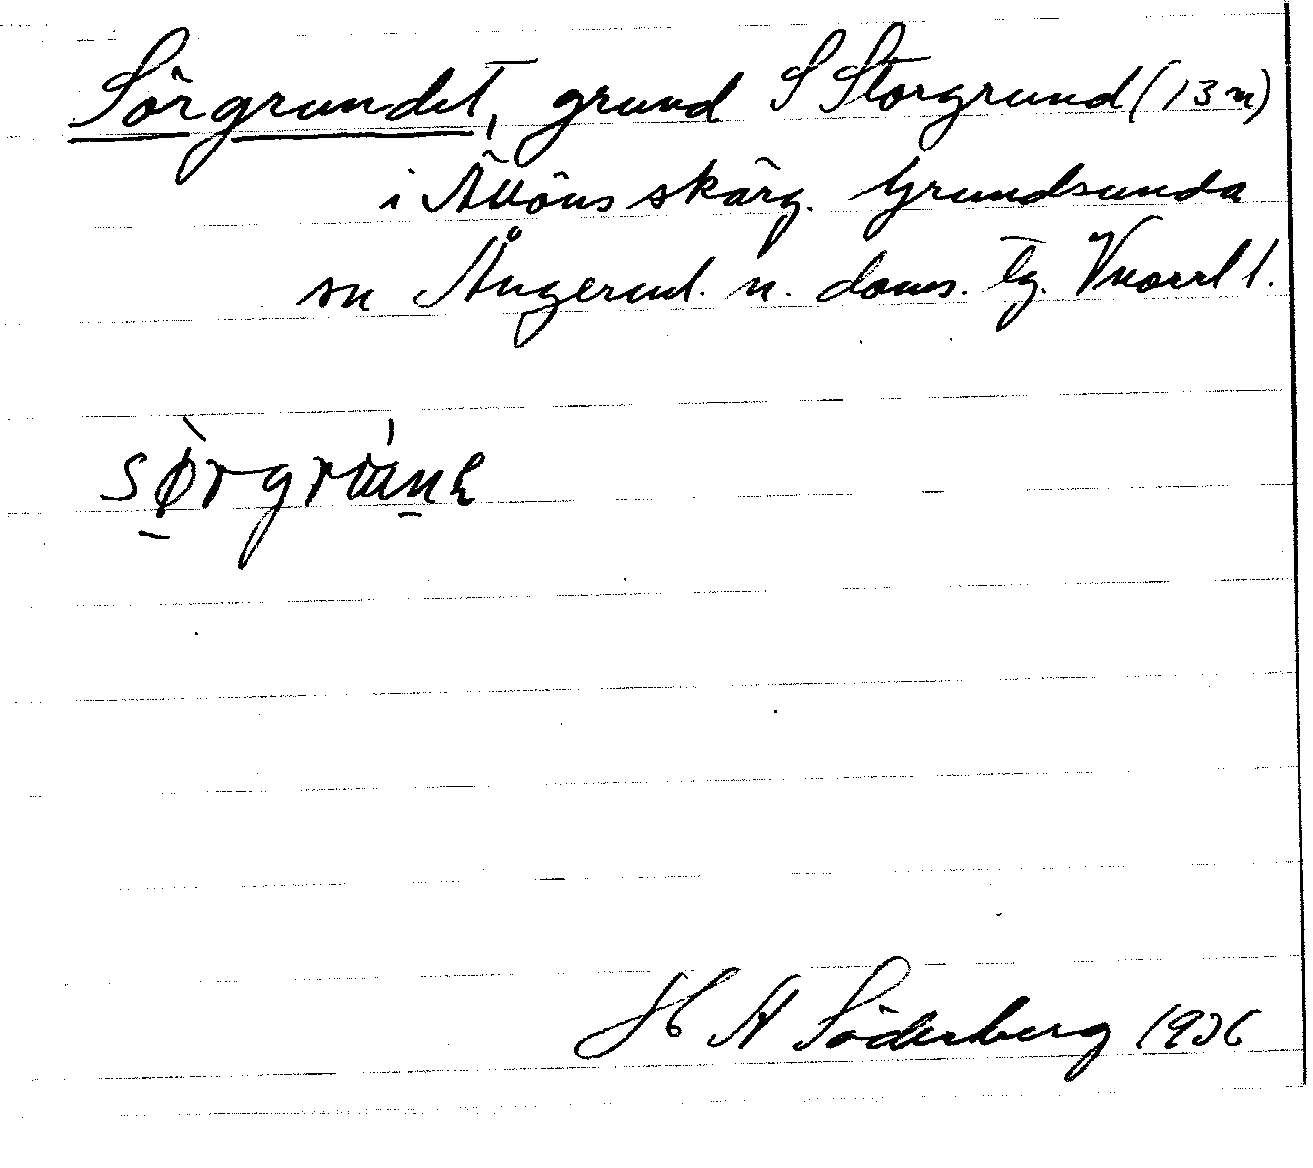 Sörgrundet, grund S Storgrund (13 m)
i Älöns skärg. Grundsunda
sn Ångerml. n. doms. tg. Vnorrl l.
sørgrunn
H A Söderberg 1936